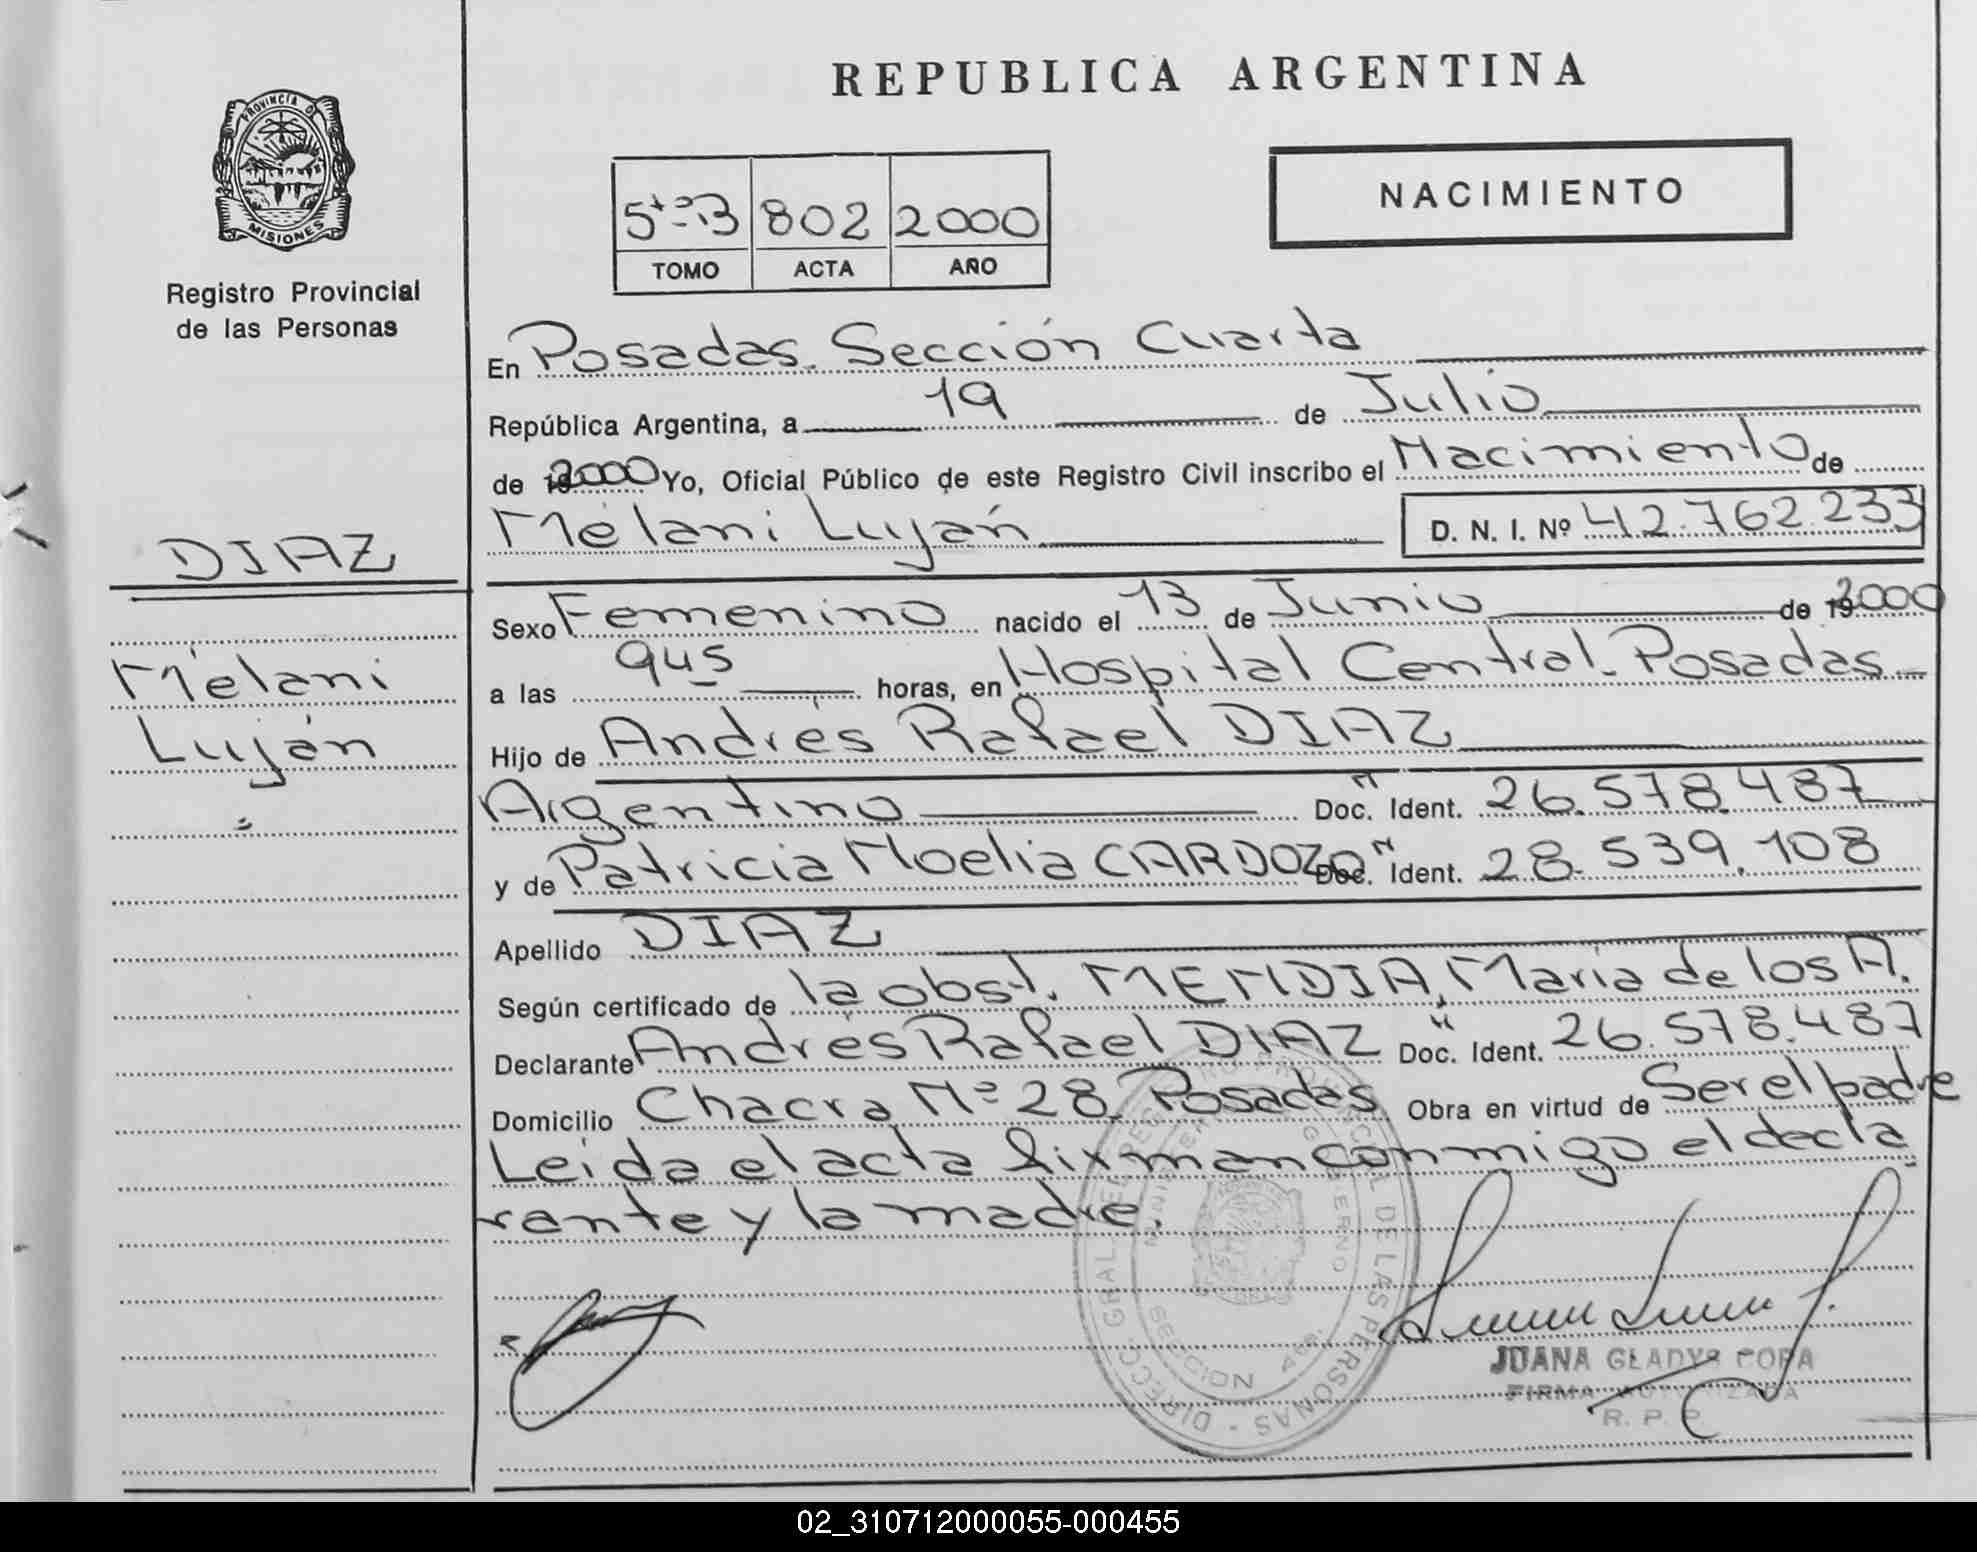 REPUBLICA ARGENTINA
PROVINCIA DE
MISIONES
Registro Provincial
de las Personas
5to B 802 2000
TOMO ACTA AÑO
NACIMIENTO
En Posadas. Sección Cuarta
República Argentina, a 19 de Julio
de 2000 Yo, Oficial Público de este Registro Civil inscribo el Nacimiento de
Mélani Luján D. N. I. Nº 42.762.233
DIAZ
Mélani
Luján
Sexo Femenino nacido el 13 de Junio de 2000
a las 945 horas, en Hospital Central. Posadas
Hijo de Andrés Rafael DIAZ
Argentino Doc. Ident. 26.578.487
y de Patricia Noelia CARDOZO Doc. Ident. 28.539.108
Apellido DIAZ
Según certificado de la obst. MENDIA, María de los A.
Declarante Andrés Rafael DIAZ Doc. Ident. 26.578.487
Domicilio Chacra Nº 28. Posadas Obra en virtud de Ser el padre
Leída el acta firman conmigo el decla
rante y la madre.
DIRECC. GRAL. DEL REGISTRO PROVINCIAL DE LAS PERSONAS
SECCION 4ta.
JUANA GLADYS
FIRMA AUTORIZADA
R. P. P.
02_310712000055-000455